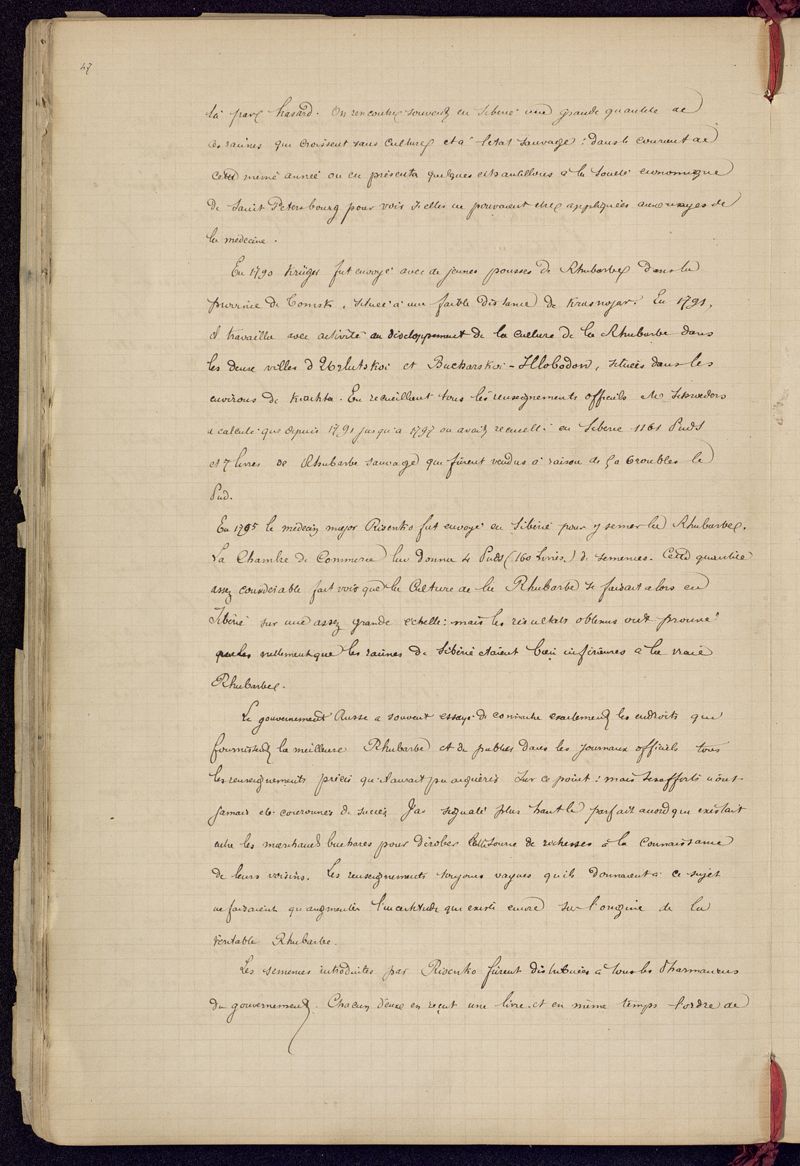 47
là par hasard. On rencontre souvent en Sibérie une grande quantité de
ces racines qui croissent sans culture et à l'état sauvage : dans le courant de
cette même année on en présenta quelques échantillons à la Société économique
de Saint Petersbourg pour voir si elles ne pouvaient être appliquées aux usages de
la médecine.
En 1790 Krüger fut envoyé avec de jeunes pousses de Rhubarbe dans la
province de Tomsk, située à une faible distance de Krasnojar. En 1791,
il travailla avec activité au développement de la culture de la Rhubarbe dans
les deux villes d' et Bucharskoi - , situées dans les
environs de Kiachta. En recueillant tous les renseignements officiels Mr Schwedors
a calculé que depuis 1791 jusqu'à 1797 on avait recueilli en Sibérie 1161 Puds
et 7 livres de Rhubarbe sauvage qui furent vendus à raison de roubles le
Pud.
En 1795 le médecin major Risenko fut envoyé en Sibérie pour y semer la Rhubarbe.
La Chambre de Commerce lui donna 4 Puds (160 livres.) de semences. Cette quantité
assez considérable fait voir que la Culture de la Rhubarbe se faisait alors en
Sibérie sur une assez grande échelle : mais les résultats obtenus ont prouvé
réellement que les racines de Sibérie étaient bien inférieures à la vraie
Rhubarbe.
Le gouvernement Russe a souvent essayé de connaître exactement les endroits qui
fournissent la meilleure Rhubarbe et de publier dans les journaux officiels tous
les renseignements précis qu'il aurait pu acquérir sur ce point : mais ses efforts n'ont
jamais été couronnés de succès. J'ai signalé plus haut le parfait accord qui existait
entre les marchands buchares pour dérober cette source de richesses à la connaissance
de leurs voisins. Les renseignements toujours vagues qu'ils donnaient à ce sujet
ne faisaient qu'augmenter l'incertitude qui existe encore sur l'origine de la
véritable Rhubarbe.
Les semences introduites par Risenko furent distribuées à tous les Pharmaciens
du gouvernement. Chacun d'eux en reçut une livre et en même temps l'ordre de